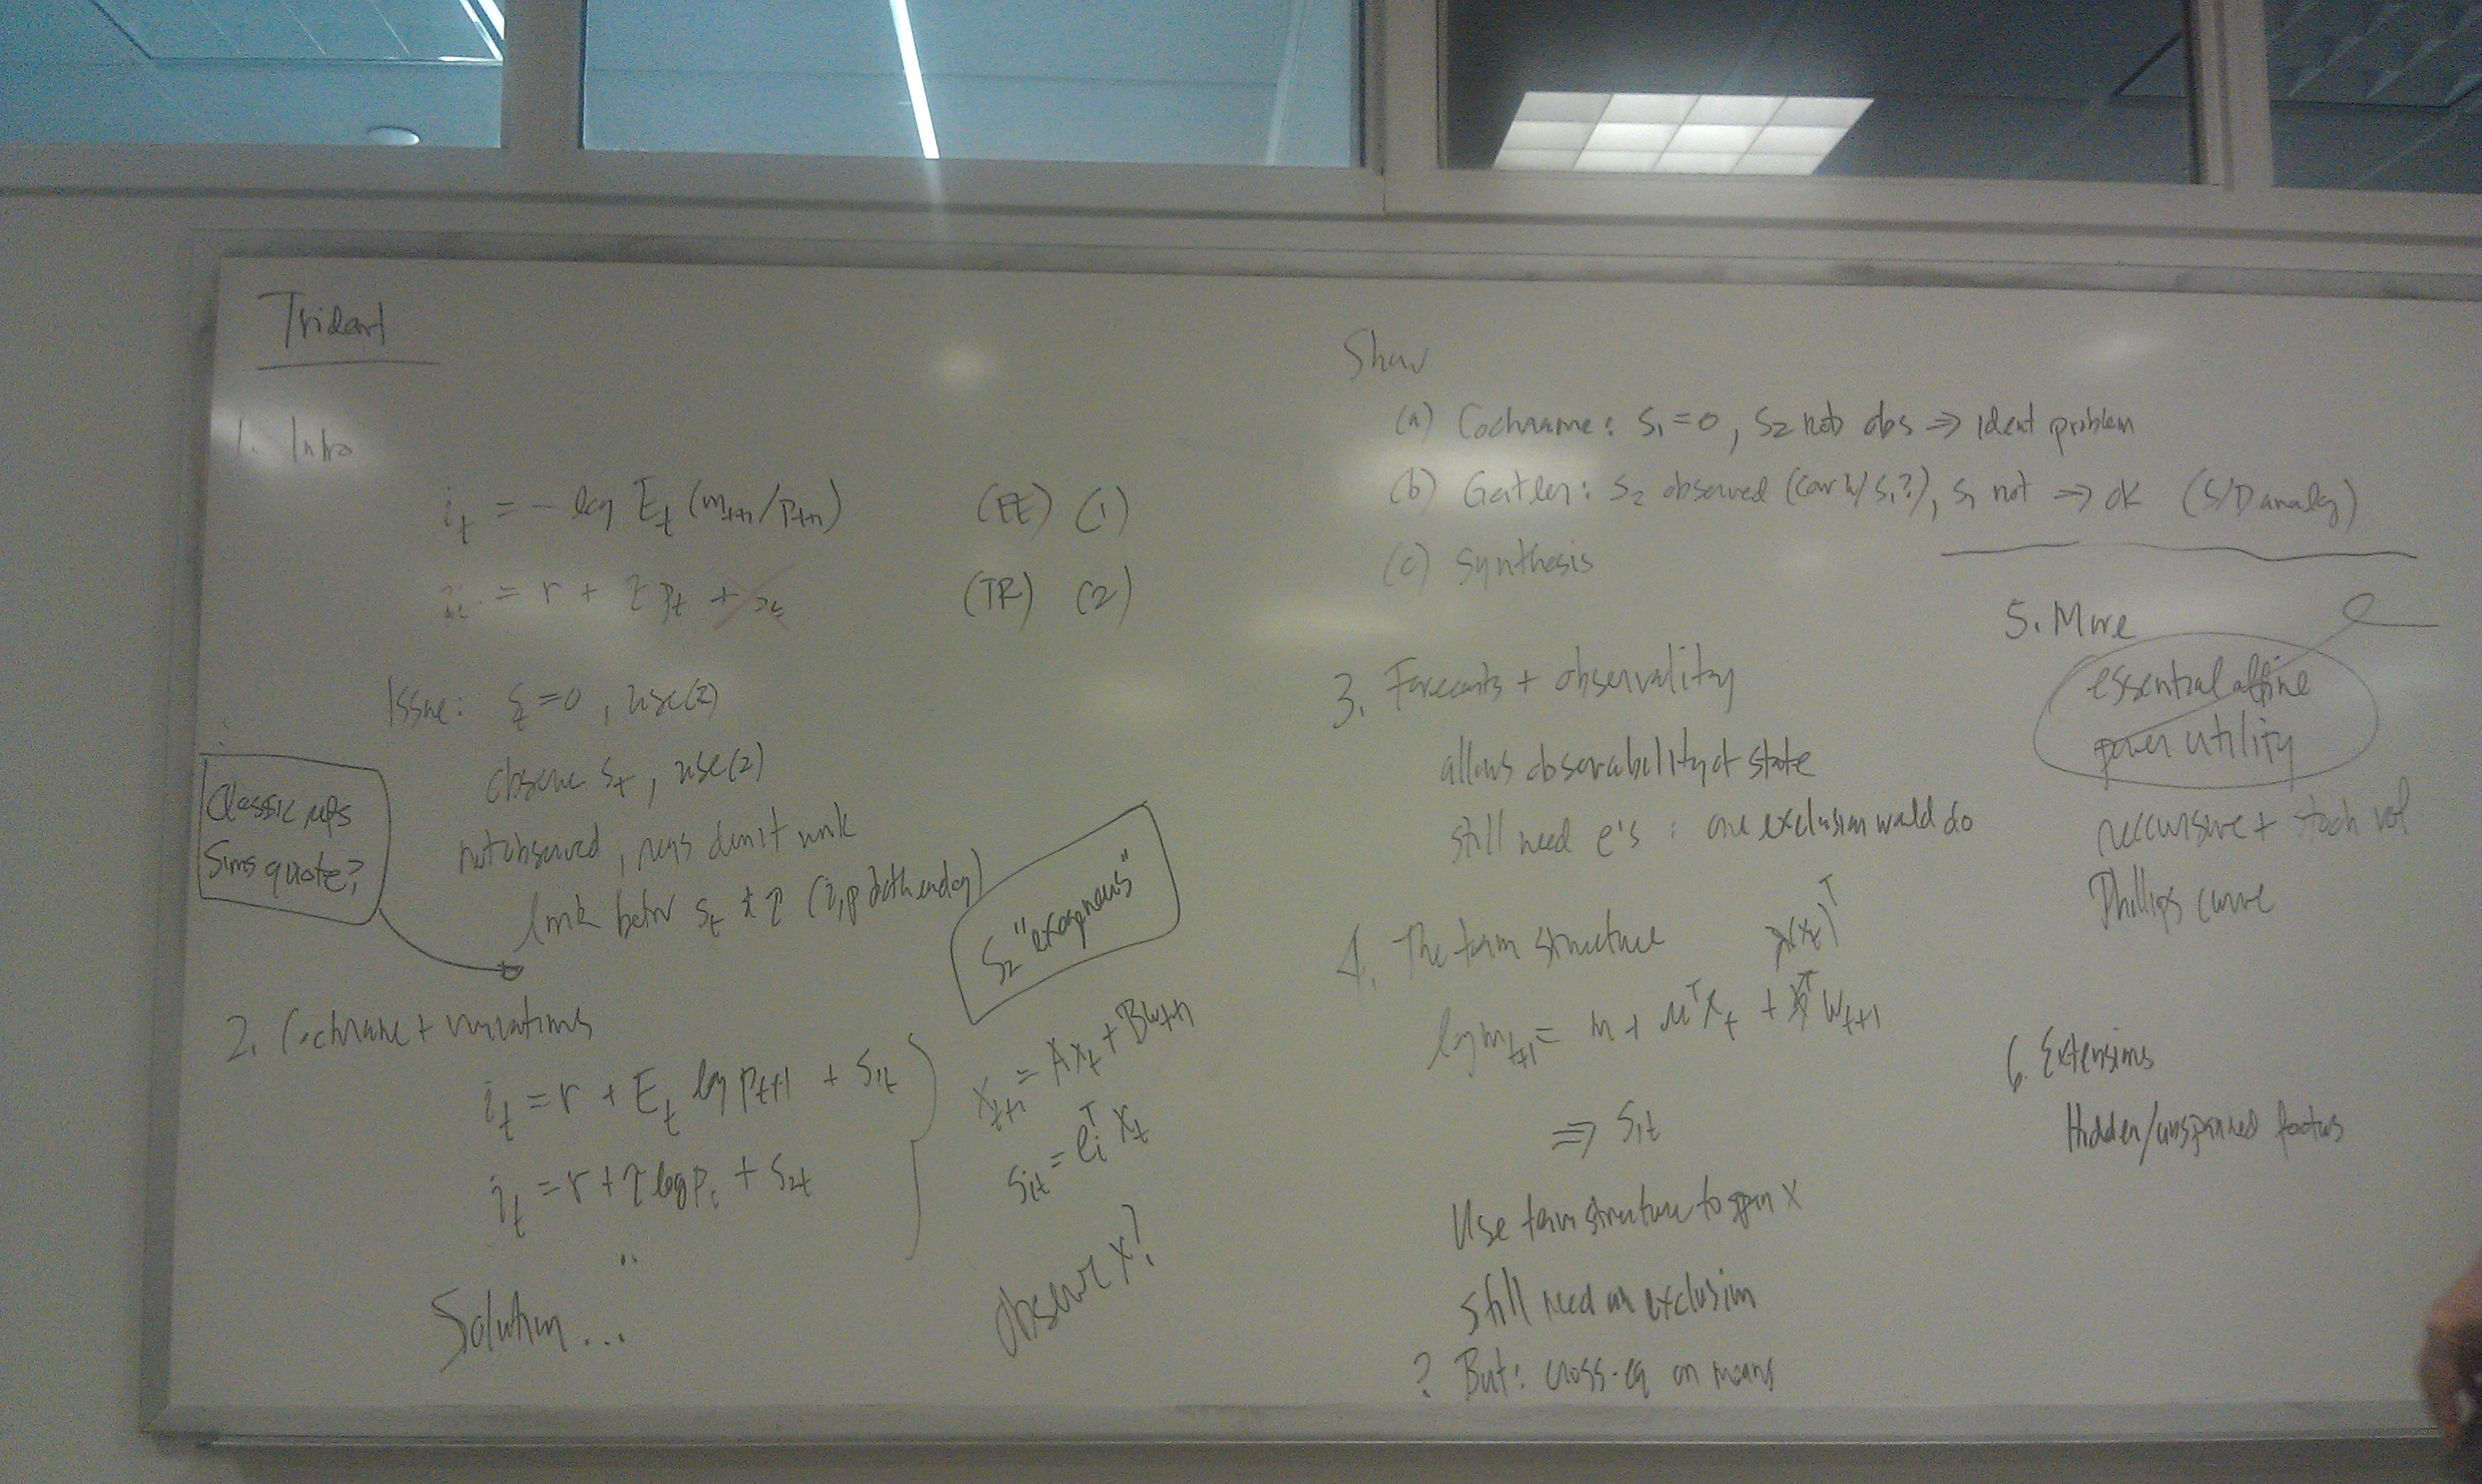 Trident
1. Intro
i_t = - log E_t (m_{t+1}/p_{t+1}) (EE) (1)
i_t = r + τ p_t + s_t (TR) (2)
Issue: s_t = 0, use (2)
observe s_t, use (2)
not observed, regs don't work
link betw s_t + τ (i, p both endog)
Classic refs
Sims quote?
S_2 "exogenous"
2. Cochrane + variations
i_t = r + E_t log p_{t+1} + s_{1t}
i_t = r + τ log p_t + s_{2t}
x_{t+1} = A x_t + B w_{t+1}
s_{it} = e_i^T x_t
observe x?
Solution ...
Show
(a) Cochrane: s_1 = 0, s_2 not obs ⇒ ident problem
(b) Gertler: s_2 observed (corr w/ s_1?), s_1 not ⇒ ok (S/D analog)
(c) Synthesis
3. Forecasts + observality
allows observability of state
still need e's : one exclusion would do
4. The term structure
λ(x_t)^T
log m_{t+1} = m + μ^T x_t + λ^T w_{t+1}
⇒ s_{1t}
Use term structure to span x
still need an exclusion
? But: cross-eq on means
5. More
essential affine
power utility
recursive + stoch vol
Phillips curve
6. Extensions
Hidden/unspanned factors